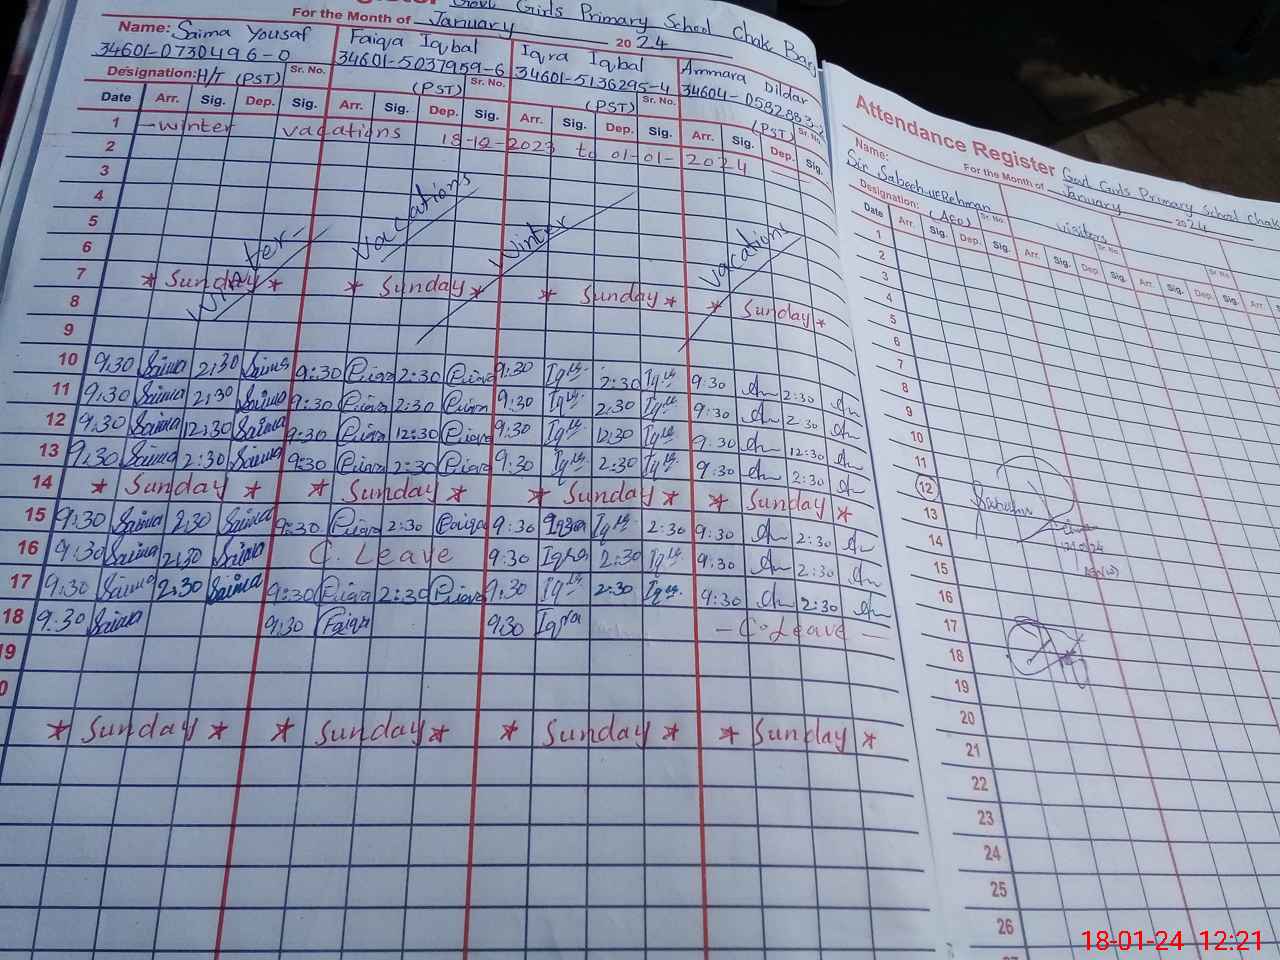 Govt Girls Primary School Chak
For the Month of January 2024
Name: Saima Yousaf Faiqa Iqbal Iqra Iqbal Ammara Dildar
34601-0730496-0 34601-5037959-6 34601-5136295-4 34604-0582883-
Designation: H/T (PST) Sr. No. (PST) Sr. No. (PST) Sr. No. (PST) Sr. No.
Date Arr. Sig. Dep. Sig. Arr. Sig. Dep. Sig. Arr. Sig. Dep. Sig. Arr. Sig. Dep. Sig.
1 -winter vacations 18-12-2023 to 01-01-2024
2
3
4
5
6
Winter- Vacations Winter Vacations
7 * Sunday * * Sunday * * Sunday * * Sunday *
8
9
10 9:30 Saima 2:30 Saima 9:30 Faiqa 2:30 Faiqa 9:30 Iq 2:30 Iq 9:30 2:30
11 9:30 Saima 2:30 Saima 9:30 Faiqa 2:30 Faiqa 9:30 Iq 2:30 Iq 9:30 2:30
12 9:30 Saima 12:30 Saima 9:30 Faiqa 12:30 Faiqa 9:30 Iq 12:30 Iq 9:30 12:30
13 9:30 Saima 2:30 Saima 9:30 Faiqa 2:30 Faiqa 9:30 Iq 2:30 Iq 9:30 2:30
14 * Sunday * * Sunday * * Sunday * * Sunday *
15 9:30 Saima 2:30 Saima 9:30 Faiqa 2:30 Faiqa 9:30 Iqra Iq 2:30 9:30 2:30
16 9:30 Saima 2:30 Saima C. Leave 9:30 Iqra 2:30 Iq 9:30 2:30
17 9:30 Saima 2:30 Saima 9:30 Faiqa 2:30 Faiqa 9:30 Iq 2:30 Iq 9:30 2:30
18 9:30 Saima 9:30 Faiqa 9:30 Iqra - C. Leave -
19
* Sunday * * Sunday * * Sunday * * Sunday *
Attendance Register Govt Girls Primary School Chak
For the Month of January 2024
Name:
Sir Sabeeh ur Rehman visitors
Designation: (AEO) Sr. No. Sr. No. Sr. No.
Date Arr. Sig. Dep. Sig. Arr. Sig. Dep. Sig. Arr. Sig. Dep. Sig. Arr.
1
2
3
4
5
6
7
8
9
10
11
12
13
14
15
16
17
18
19
20
21
22
23
24
25
26
18-01-24 12:21